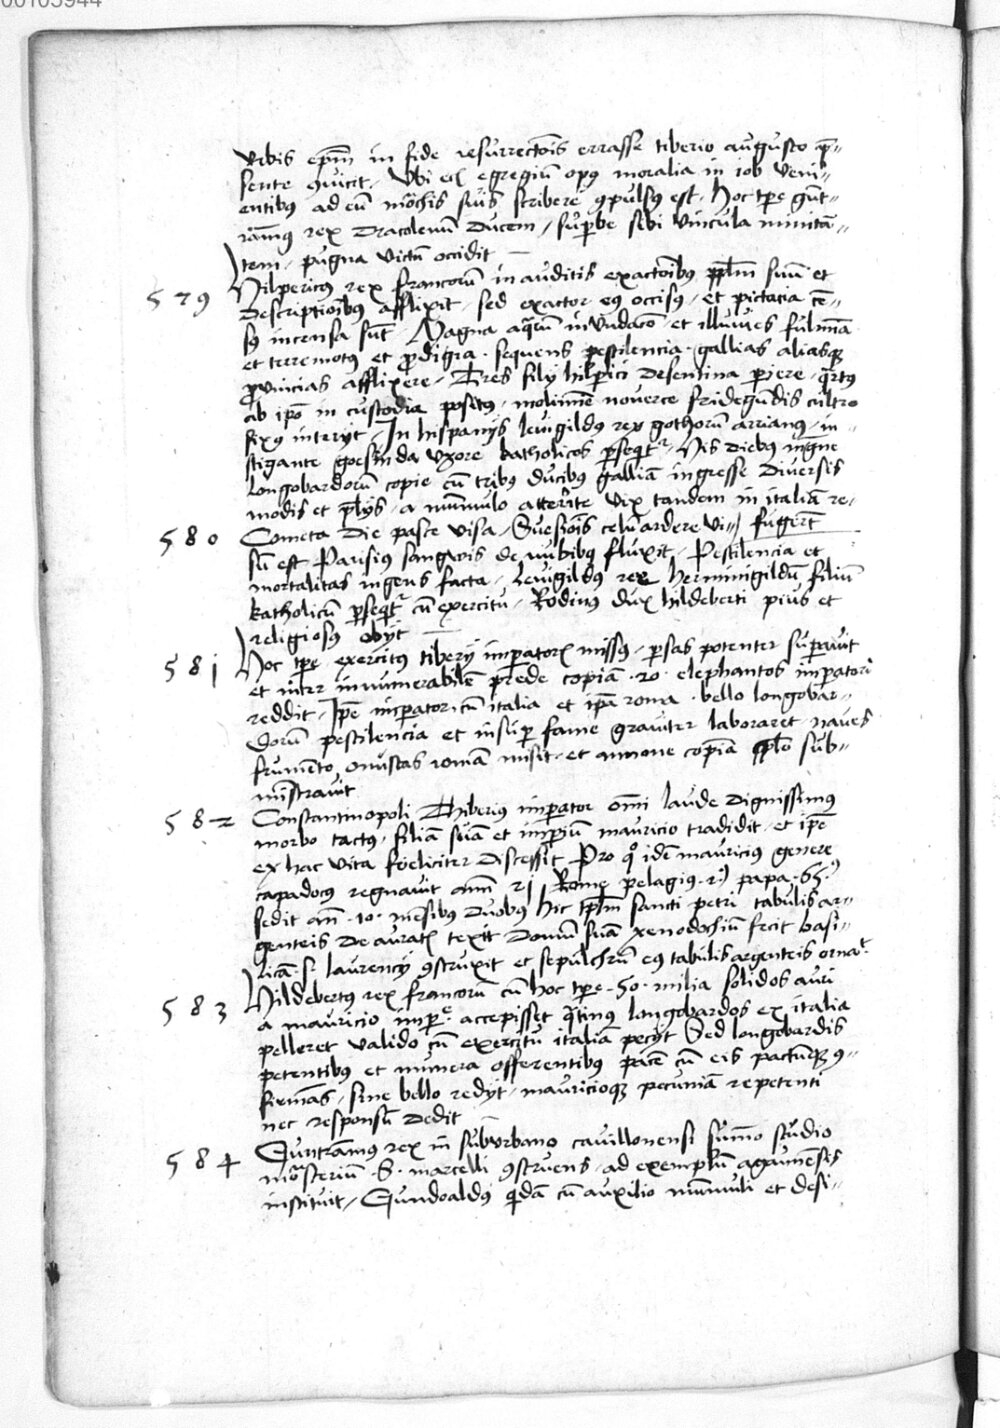 00105944
urbis epm̄ in fide resurrectōis errasse tiberio augusto p̄⸗
sente ꝯuicit, Ubi et egregiū opꝯ moralia in iob Veni⸗
entibꝯ ad eū mōchis suis scribere ꝯpulsꝯ est, hoc tp̄e gūt⸗
rāmꝯ rex Dracolenū Ducem, suꝑbe sibi Vincula minitā⸗
tem, pugna victū occidit
579 Hilpericꝯ rex francorū inauditis exactōibꝯ pplm̄ suū et
Descriptionibꝯ afflixit, sed exactor eꝯ occisꝯ, et pictacia cē⸗
sꝯ incensa sūt, Magna aq̄rū inūdacō et illuuies fulmina
et terremotꝯ et ꝓdigia. sequens pestilencia. gallias aliasqꝫ
ꝓuincias afflixere, Tres filij hilperici desentina ꝑiere, q̄rtꝯ
ab ipō in custodia positꝯ, molimīe nouerce fridegūdis cultro
fixꝯ interijt, In hispanijs leuigildꝯ rex gothorū arrianꝯ, in⸗
stigante goesinda uxore katholicos ꝑseqt̄ᷣ, His diebꝯ magne
longobardorū copie cū tribꝯ ducibꝯ galliā ingresse diuersis
modis et p̄lijs, a mūmulo attrite vix tandem in italiā re⸗
580 Cometa die pasce visa, Suessiōis celū ardere vi⸗ | fugerūt
sū est Parisius sangwis de nubibꝯ fluxit, Pestilencia et
mortalitas ingens facta, leuigildꝯ rex herminigildū filiū
katholicū ꝑseqt̄ᷣ cū exercitu, Rodinꝯ dux hildeberti pius et
religiosꝯ obijt
581 Hoc tp̄e exercitꝯ tiberij imperatorꝭ missꝯ, persas potenter suꝑauit
et inter innumerabilē prede copiā .20. elephantos imperatori
reddit, Ipe imperator cū italia et ipā roma. bello longobar⸗
dorū pestilencia et insuꝑ fame grauiter laboraret, naues
frumēto onustas romā misit, et annone copiā pplo sub⸗
ministrauit
582 Constantinopoli Thiberius imperator omī laude dignissimus
morbo tactꝯ, filiā suā et imperiū mauricio tradidit, et ipe
ex hac vita foeliciter discessit Pro q° idē mauricius genere
capadocꝯ regnauit ann̄ 21 Rome pelagiꝯ .2. papa .65.
sedit an̄ .10. mēsibꝯ duobꝯ hic tplm̄ sancti petri tabulis ar⸗
genteis de auratꝭ texit Domū suā xenodochiū fecit basi⸗
licā S. laurencij ꝯstruxit et sepulchrū eꝯ tabulis argenteis ornat
583 Hildebertꝯ rex francorū cū hoc tp̄e .50. milia solidos auri
a mauricio impe accepisset q̄tinꝯ longobardos ex italia
pelleret valido cū exercitu italiā petijt Sed longobardis
petentibꝯ et munera offerentibꝯ pacē cū eis pactūqꝫ ꝯ⸗
firmās, sine bello redijt, mauricioqꝫ pecuniā repetenti
nec responsū dedit
584 Guntrāmꝯ rex in suburbano cauillonensi sūmo studio
mōsteriū S. marcelli ꝯstruens, ad exemplū agaunēsis
instituit, Gundoaldꝯ qdā cū auxilio mūmuli et desi⸗